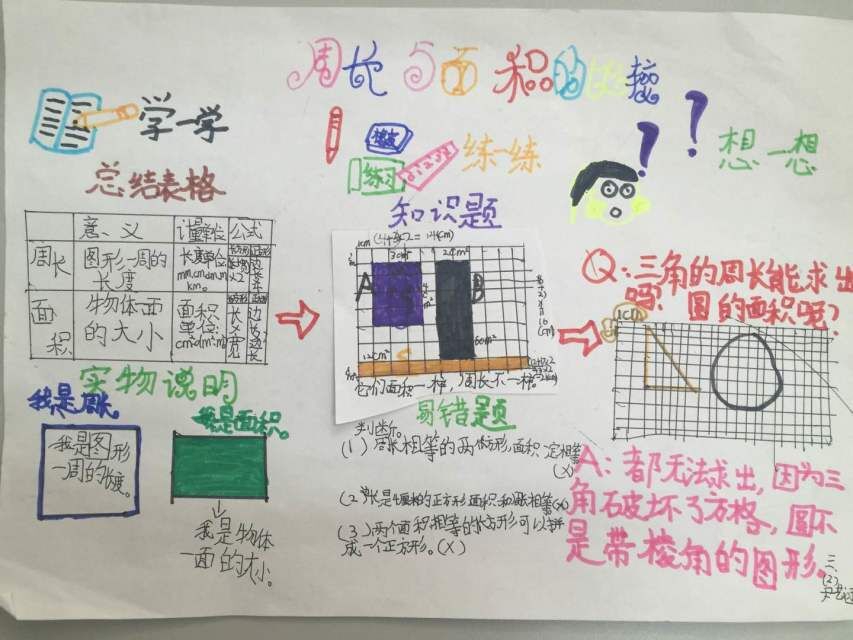 周长与面积的比较
学一学
总结表格
意义 计量单位 公式
周长 图形一周的长度 长度单位
面积 物体面的大小 面积单位:
实物说明
我是周长。
我是图形
一周的长度。
我是面积。
我是物体
一面的大小。
练习
练一练
知识题
1cm
3cm
24cm²
A
B
12cm²
60m²
它们面积一样,周长不一样。
易错题
判断。
(1)周长相等的两个长方形面积一定相等
(X)
(3)两个面积相等的长方形可以拼
成一个正方形。(X)
想一想
Q:三角的周长能求出
吗?圆的面积呢?
A:都无法求出,因为三
角破坏了方格,圆不
是带棱角的图形。